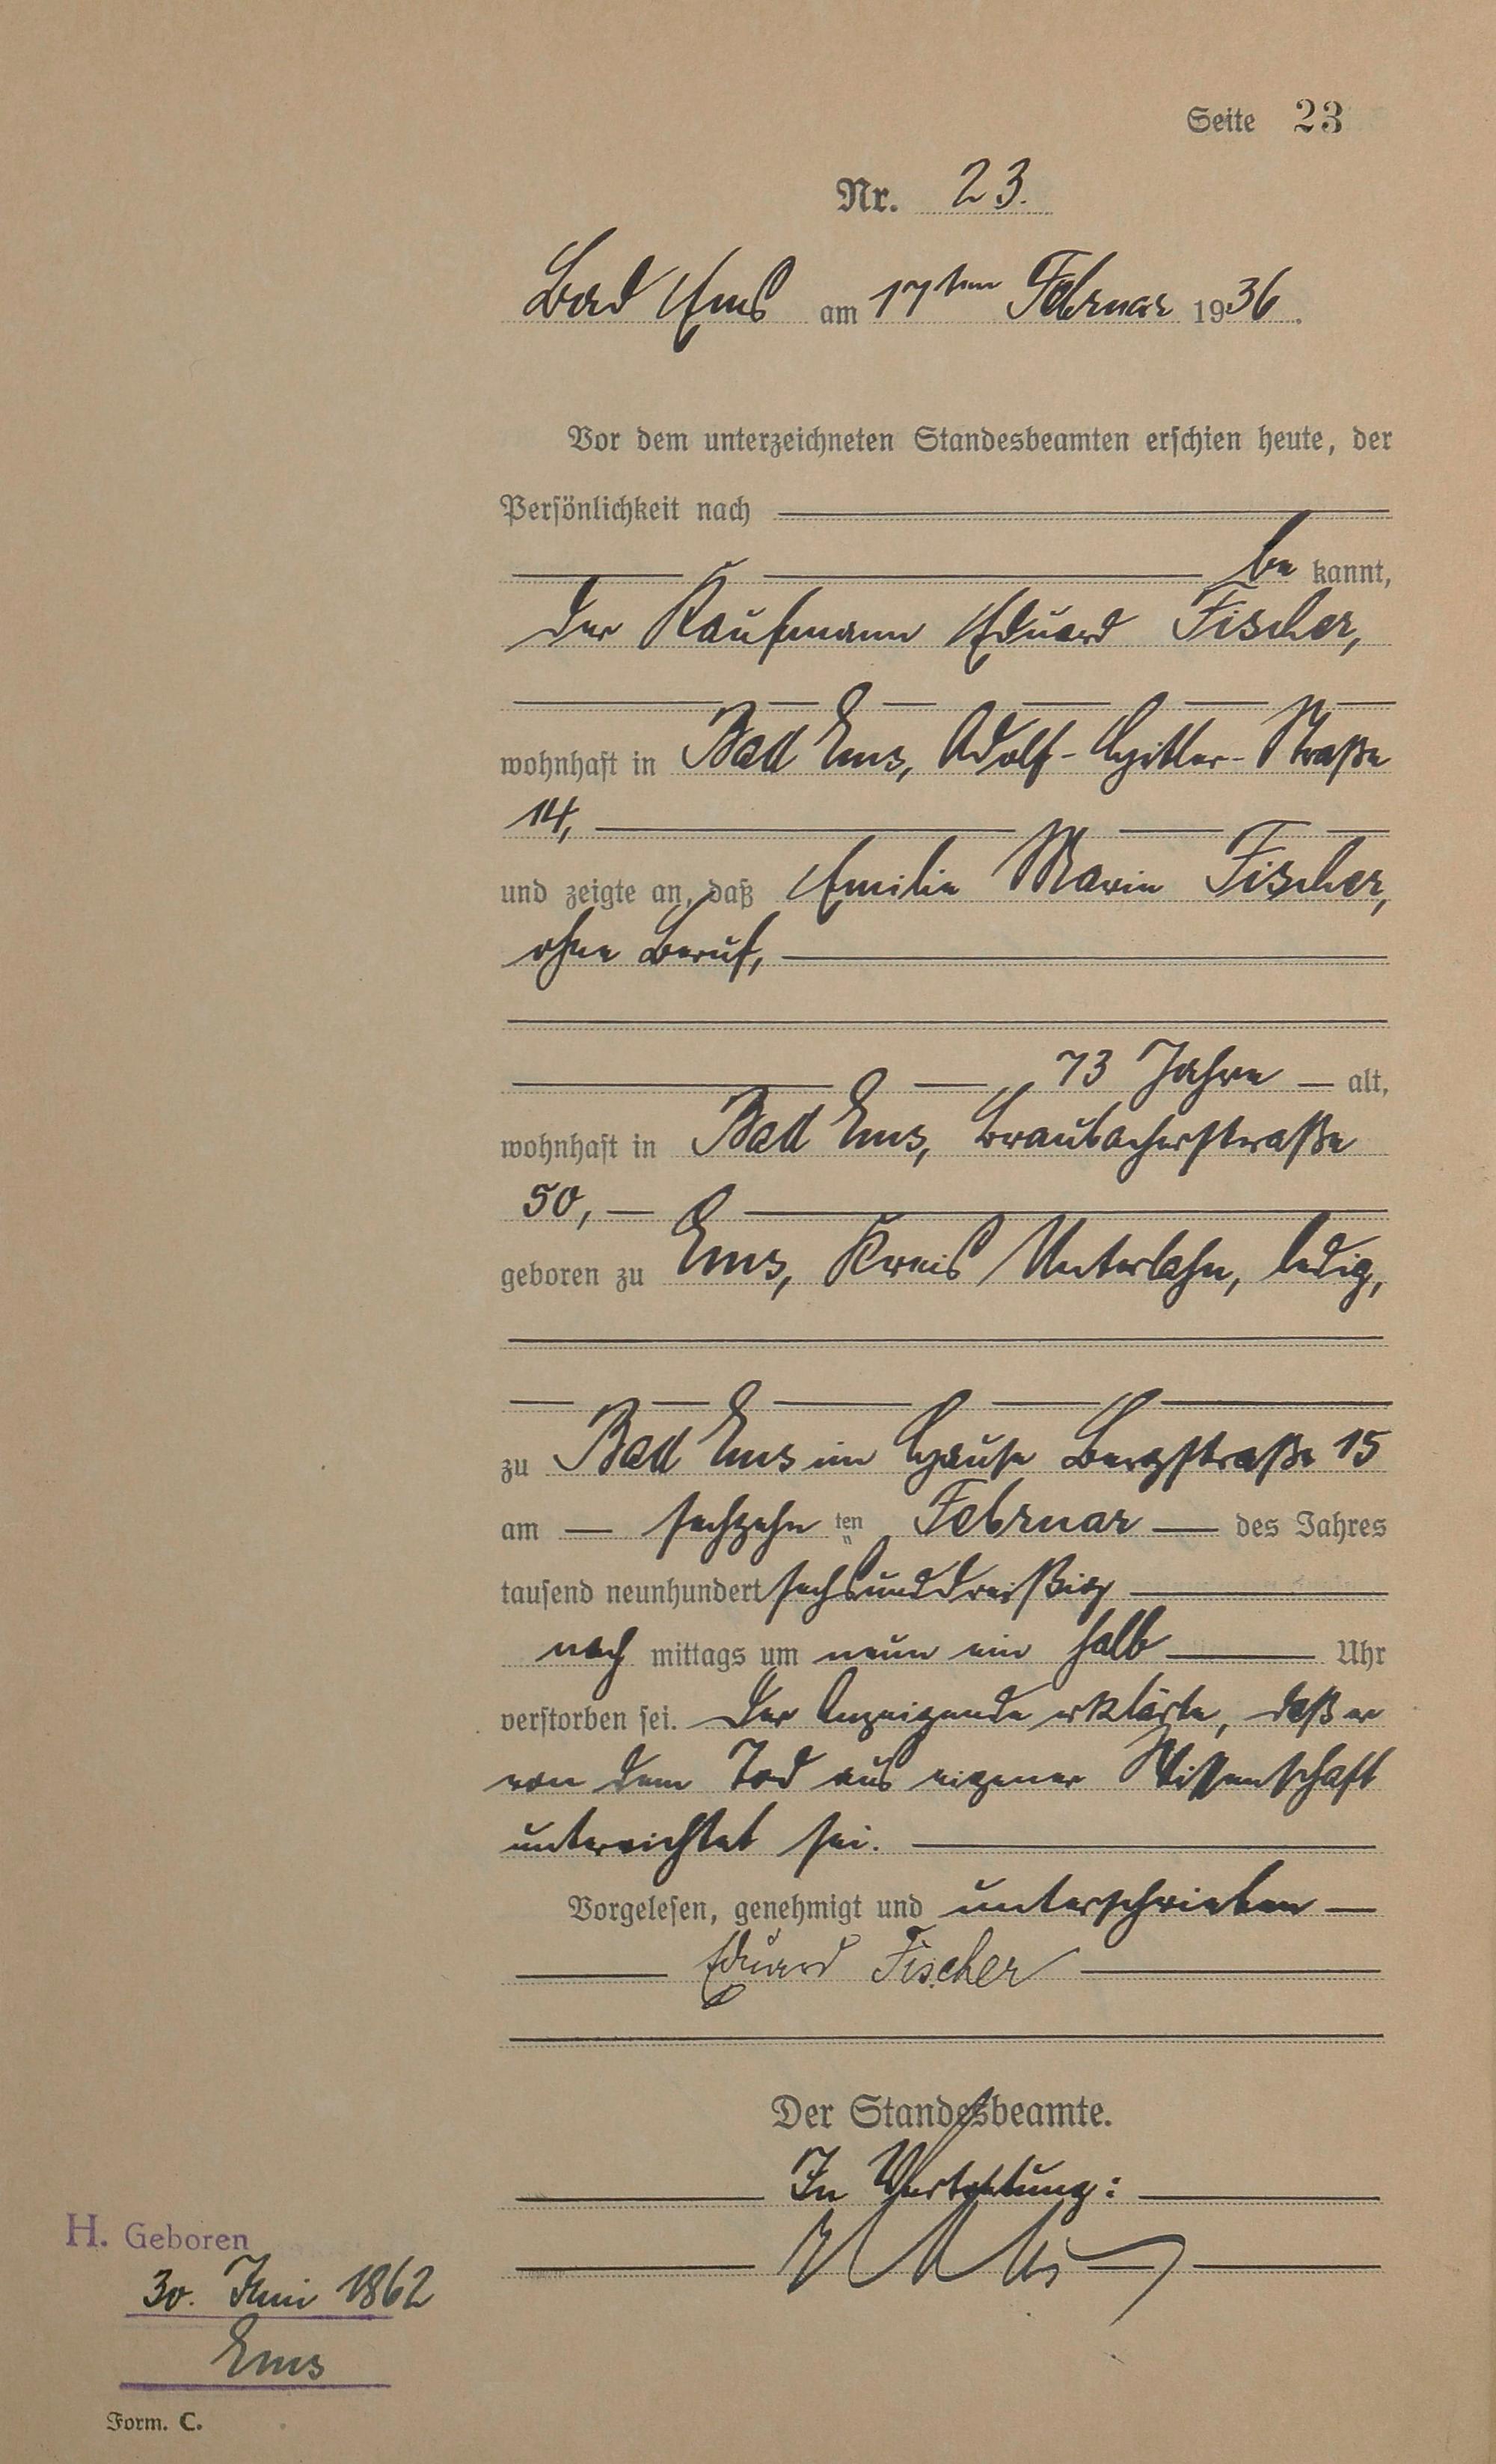 Seite 23
Nr. 23.
Bad Ems am 17ten Februar 1936.
Vor dem unterzeichneten Standesbeamten erschien heute, der
Persönlichkeit nach
be kannt,
der Kaufmann Eduard Fischer,
wohnhaft in Bad Ems, Adolf-Hitler-Straße
14,
und zeigte an, daß Emilie Marie Fischer,
ohne Beruf,
73 Jahre alt,
wohnhaft in Bad Ems, Braubacherstraße
50,
geboren zu Ems, Kreis Unterlahn, ledig,
zu Bad Ems im Hause Bergstraße 15
am sechzehn ten Februar des Jahres
tausend neunhundert sechsunddreißig
nach mittags um neun ein halb Uhr
verstorben sei. Der Anzeigende erklärte, daß er
von dem Tod aus eigener Wissenschaft
unterrichtet sei.
Vorgelesen, genehmigt und unterschrieben
Eduard Fischer
Der Standesbeamte.
In Vertretung:
H. Geboren
30. Juni 1862
Ems
Form. C.